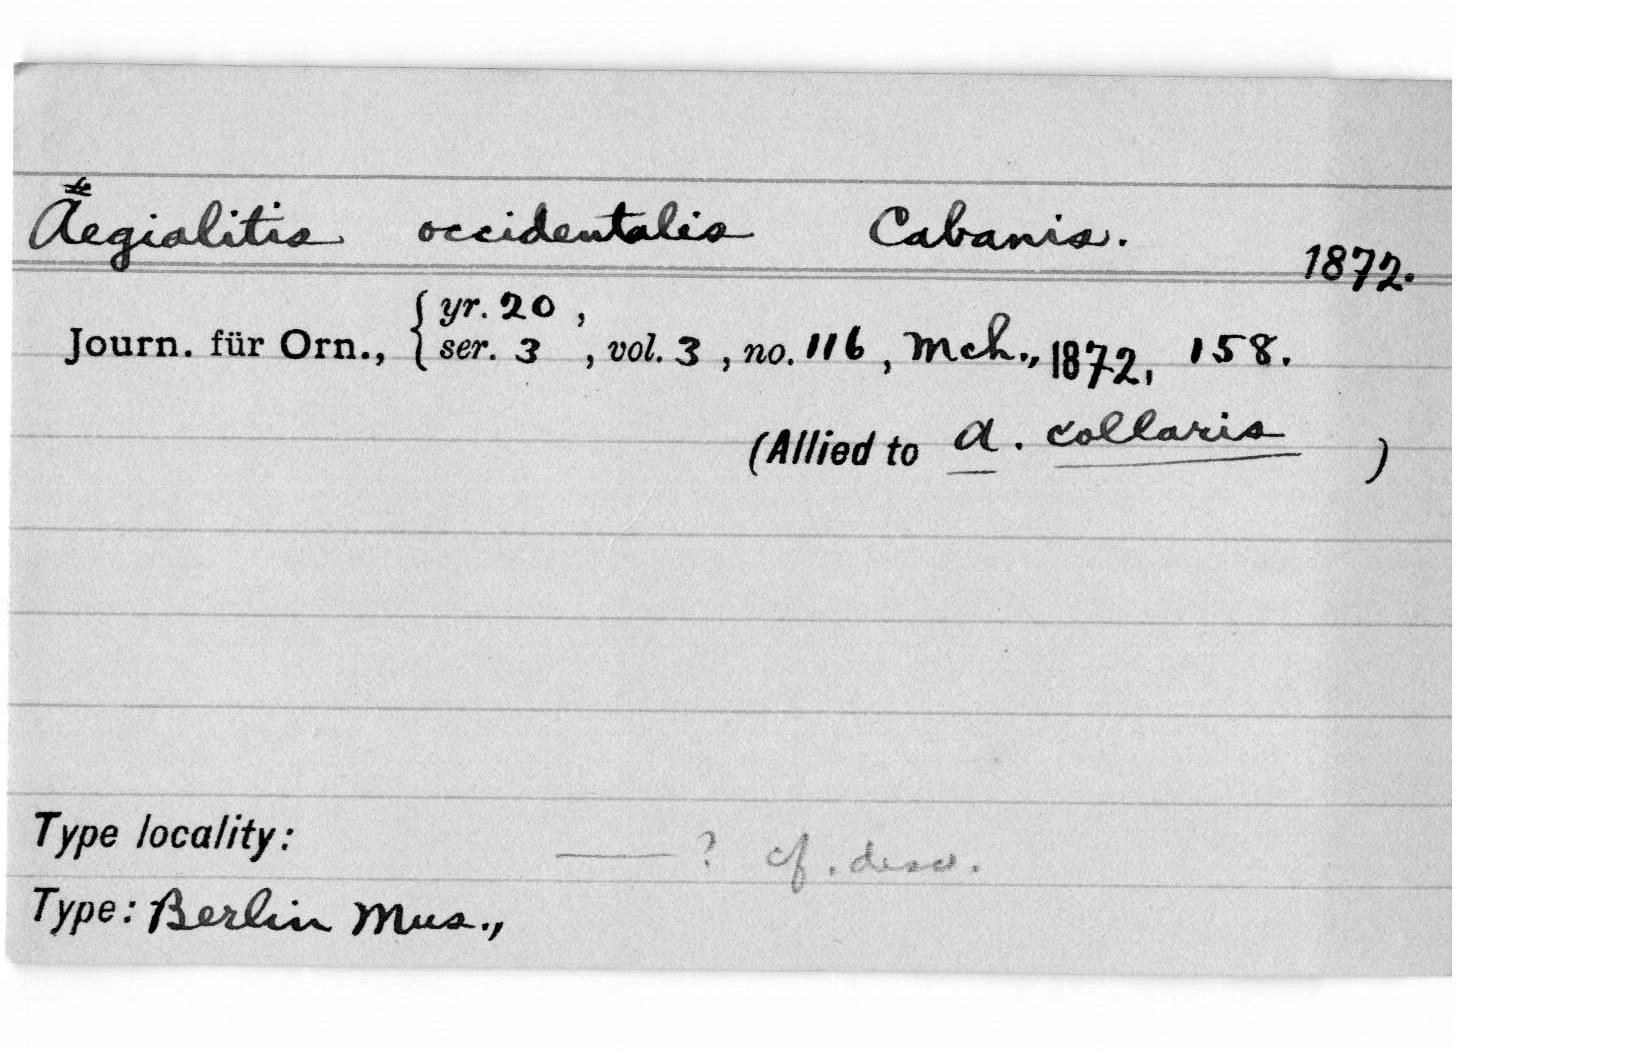 Aegialitis occidentalis Cabanis.
1872.
Journ. für Orn., { yr. 20 ,
ser. 3 , vol. 3 , no. 116 , Mch., 1872, 158.
(Allied to A. collaris )
Type locality: —— ? cf. desc.
Type: Berlin Mus.,